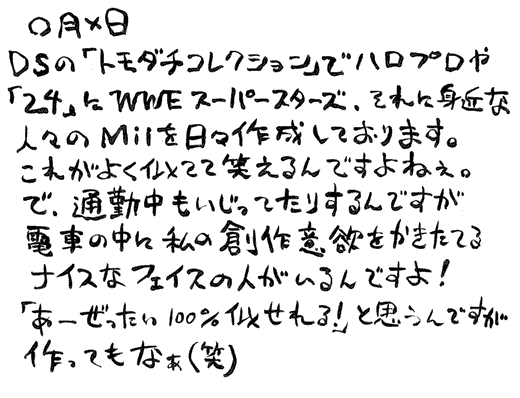 〇月×日
DSの「トモダチコレクション」でハロプロや
「24」にWWEスーパースターズ、それに身近な
人々のMiiを日々作成しております。
これがよく似てて笑えるんですよねぇ。
で、通勤中もいじってたりするんですが
電車の中に私の創作意欲をかきたてる
ナイスなフェイスの人がいるんですよ!
「あーぜったい100%似せれる!」と思うんですが
作ってもなぁ(笑)